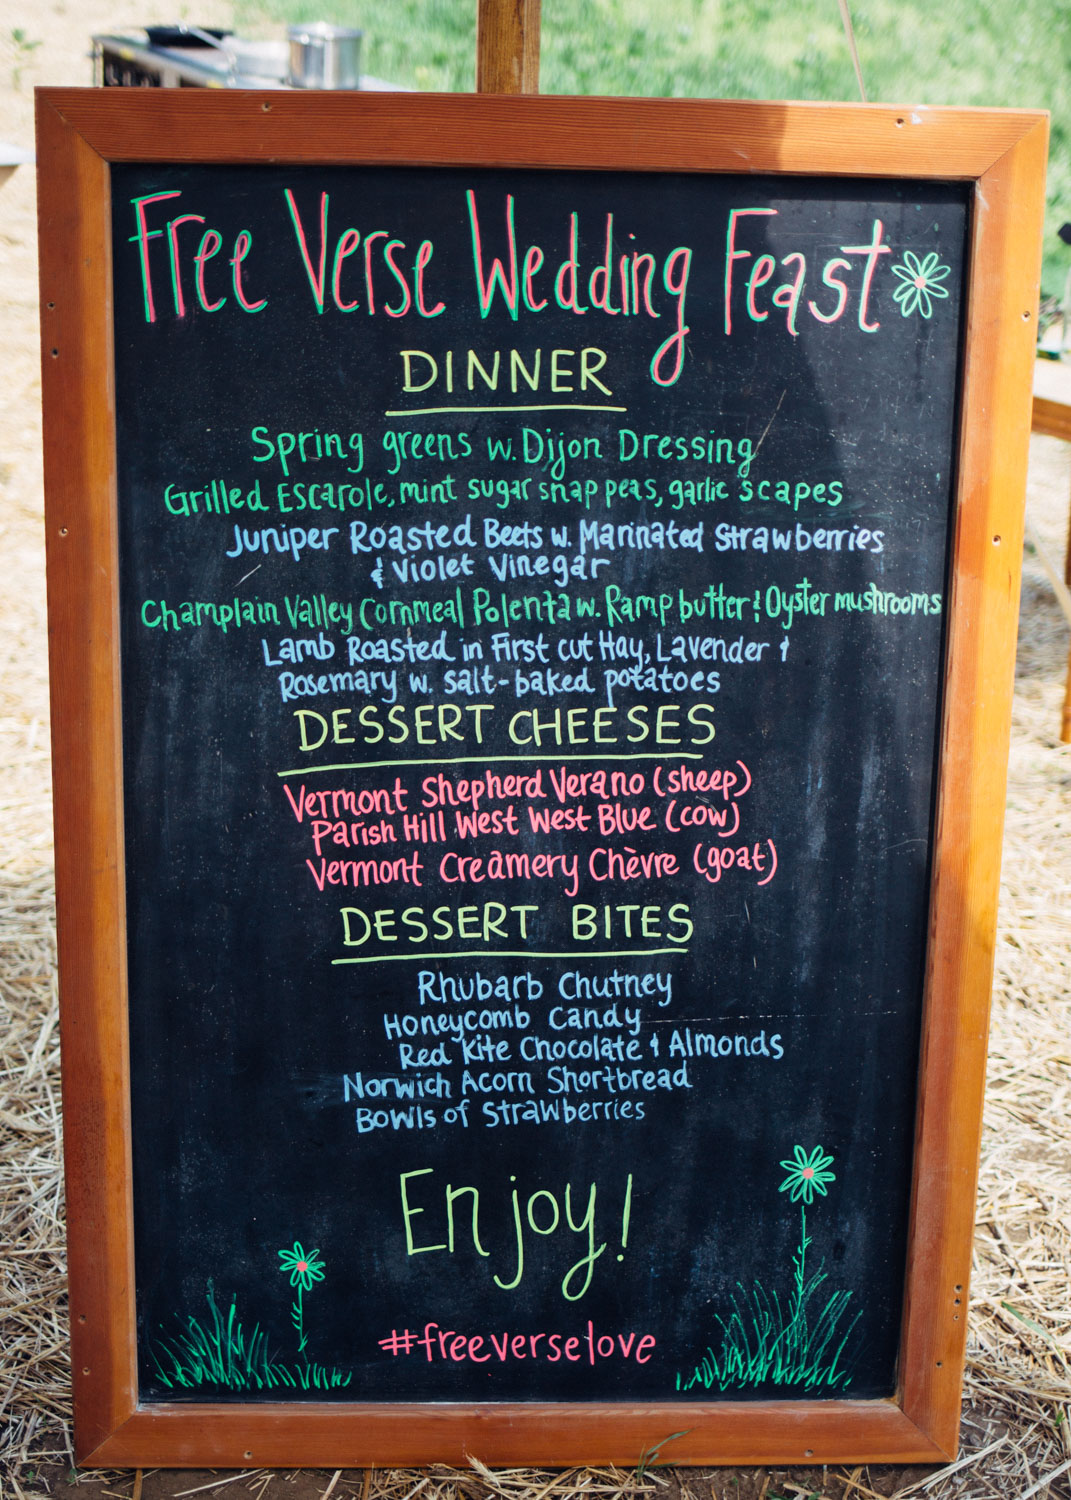 Free Verse Wedding Feast
DINNER
Spring greens w. Dijon Dressing
Grilled Escarole, mint sugar snap peas, garlic scapes
Juniper Roasted Beets w. Marinated Strawberries
& Violet Vinegar
Champlain Valley Cornmeal Polenta w. Ramp butter & Oyster mushrooms
Lamb Roasted in First cut Hay, Lavender &
Rosemary w. salt-baked potatoes
DESSERT CHEESES
Vermont Shepherd Verano (sheep)
Parish Hill West West Blue (cow)
Vermont Creamery Chèvre (goat)
DESSERT BITES
Rhubarb Chutney
Honeycomb Candy
Red Kite Chocolate & Almonds
Norwich Acorn Shortbread
Bowls of Strawberries
Enjoy!
#freeverselove